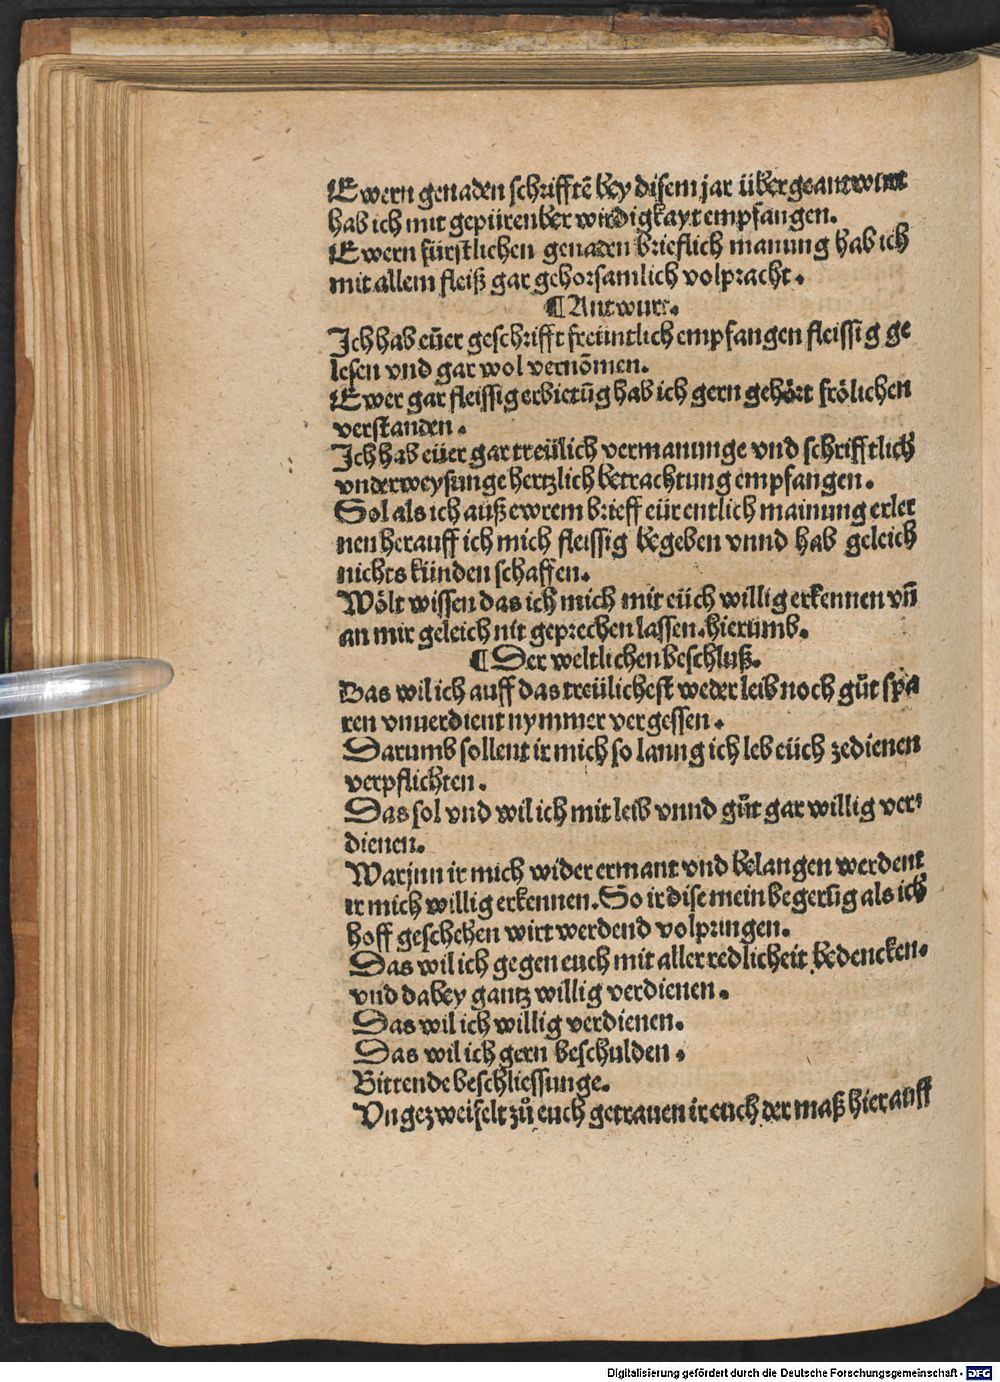 Ewern genaden schrifftē bey disem jar übergeantwurt
hab ich mit gepürenber wirdigkayt empfangen.
Ewern fürstlichen genaden brieflich manung hab ich
mit allem fleiß gar gehorsamlich volpracht.
¶ Antwurt.
Ich hab eüer geschrifft freüntlich empfangen fleissig ge
lesen vnd gar wol vernōmen.
Ewer gar fleissig erbietūg hab ich gern gehört frölichen
verstanden.
Ich hab eüer gar treülich vermanunge vnd schrifftlich
vnderweysunge hertzlich betrachtung empfangen.
Sol als ich auß ewrem brieff eür entlich mainung erler
nen herauff ich mich fleissig begeben vnnd hab geleich
nichts künden schaffen.
Wölt wissen das ich mich mit eüch willig erkennen vn̄
an mir geleich nit geprechen lassen. hierumb.
¶ Der weltlichen beschluß.
Das wil ich auff das treülichest weder leib noch gůt spa
ren vnuerdient nymmer vergessen.
Darumb sollent ir mich so lanng ich leb eüch zedienen
verpflichten.
Das sol vnd wil ich mit leib vnnd gůt gar willig ver⸗
dienen.
Warjnn ir mich wider ermant vnd belangen werdent
ir mich willig erkennen. So ir dise mein begerūg als ich
hoff geschehen wirt werdend volpringen.
Das wil ich gegen euch mit aller redlicheit bedencken.
vnd dabey gantz willig verdienen.
Das wil ich willig verdienen.
Das wil ich gern beschulden.
Bittende beschliessunge.
Vngezweifelt zů euch getrauen ir euch der maß hierauff
Digitalisierung gefördert durch die Deutsche Forschungsgemeinschaft - DFG